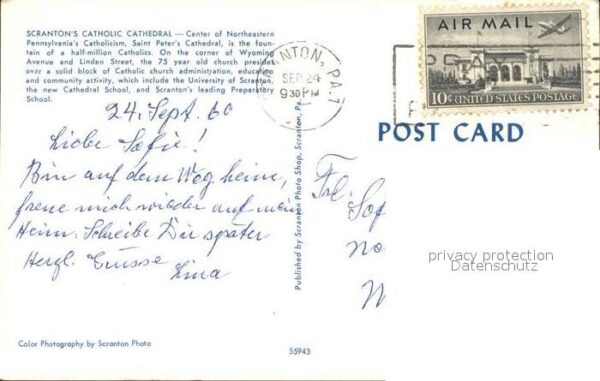 SCRANTON'S CATHOLIC CATHEDRAL — Center of Northeastern
Pennsylvania's Catholicism, Saint Peter's Cathedral, is the foun-
tain of a half-million Catholics. On the corner of Wyoming
Avenue and Linden Street, the 75 year old church presides
over a solid block of Catholic church administration, education
and community activity, which include the University of Scranton,
the new Cathedral School, and Scranton's leading Preparatory
School.
24. Sept. 60
Liebe Sofie!
Bin auf dem Weg heim,
freue mich wieder auf mein
Heim. Schreibe Dir später
Herzl. Grüsse
Lina
Color Photography by Scranton Photo
S5943
Published by Scranton Photo Shop, Scranton, Pa.
SCRANTON, PA. 7
SEP 24
930 PM
AIR MAIL
10¢ UNITED STATES POSTAGE
POST CARD
Frl. Sof
privacy protection
Datenschutz